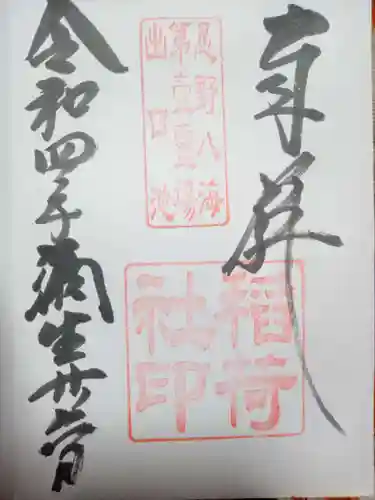 奉拝
忍野八海
第壱霊場
出口池
稲荷
社印
令和四年彌生廿六日